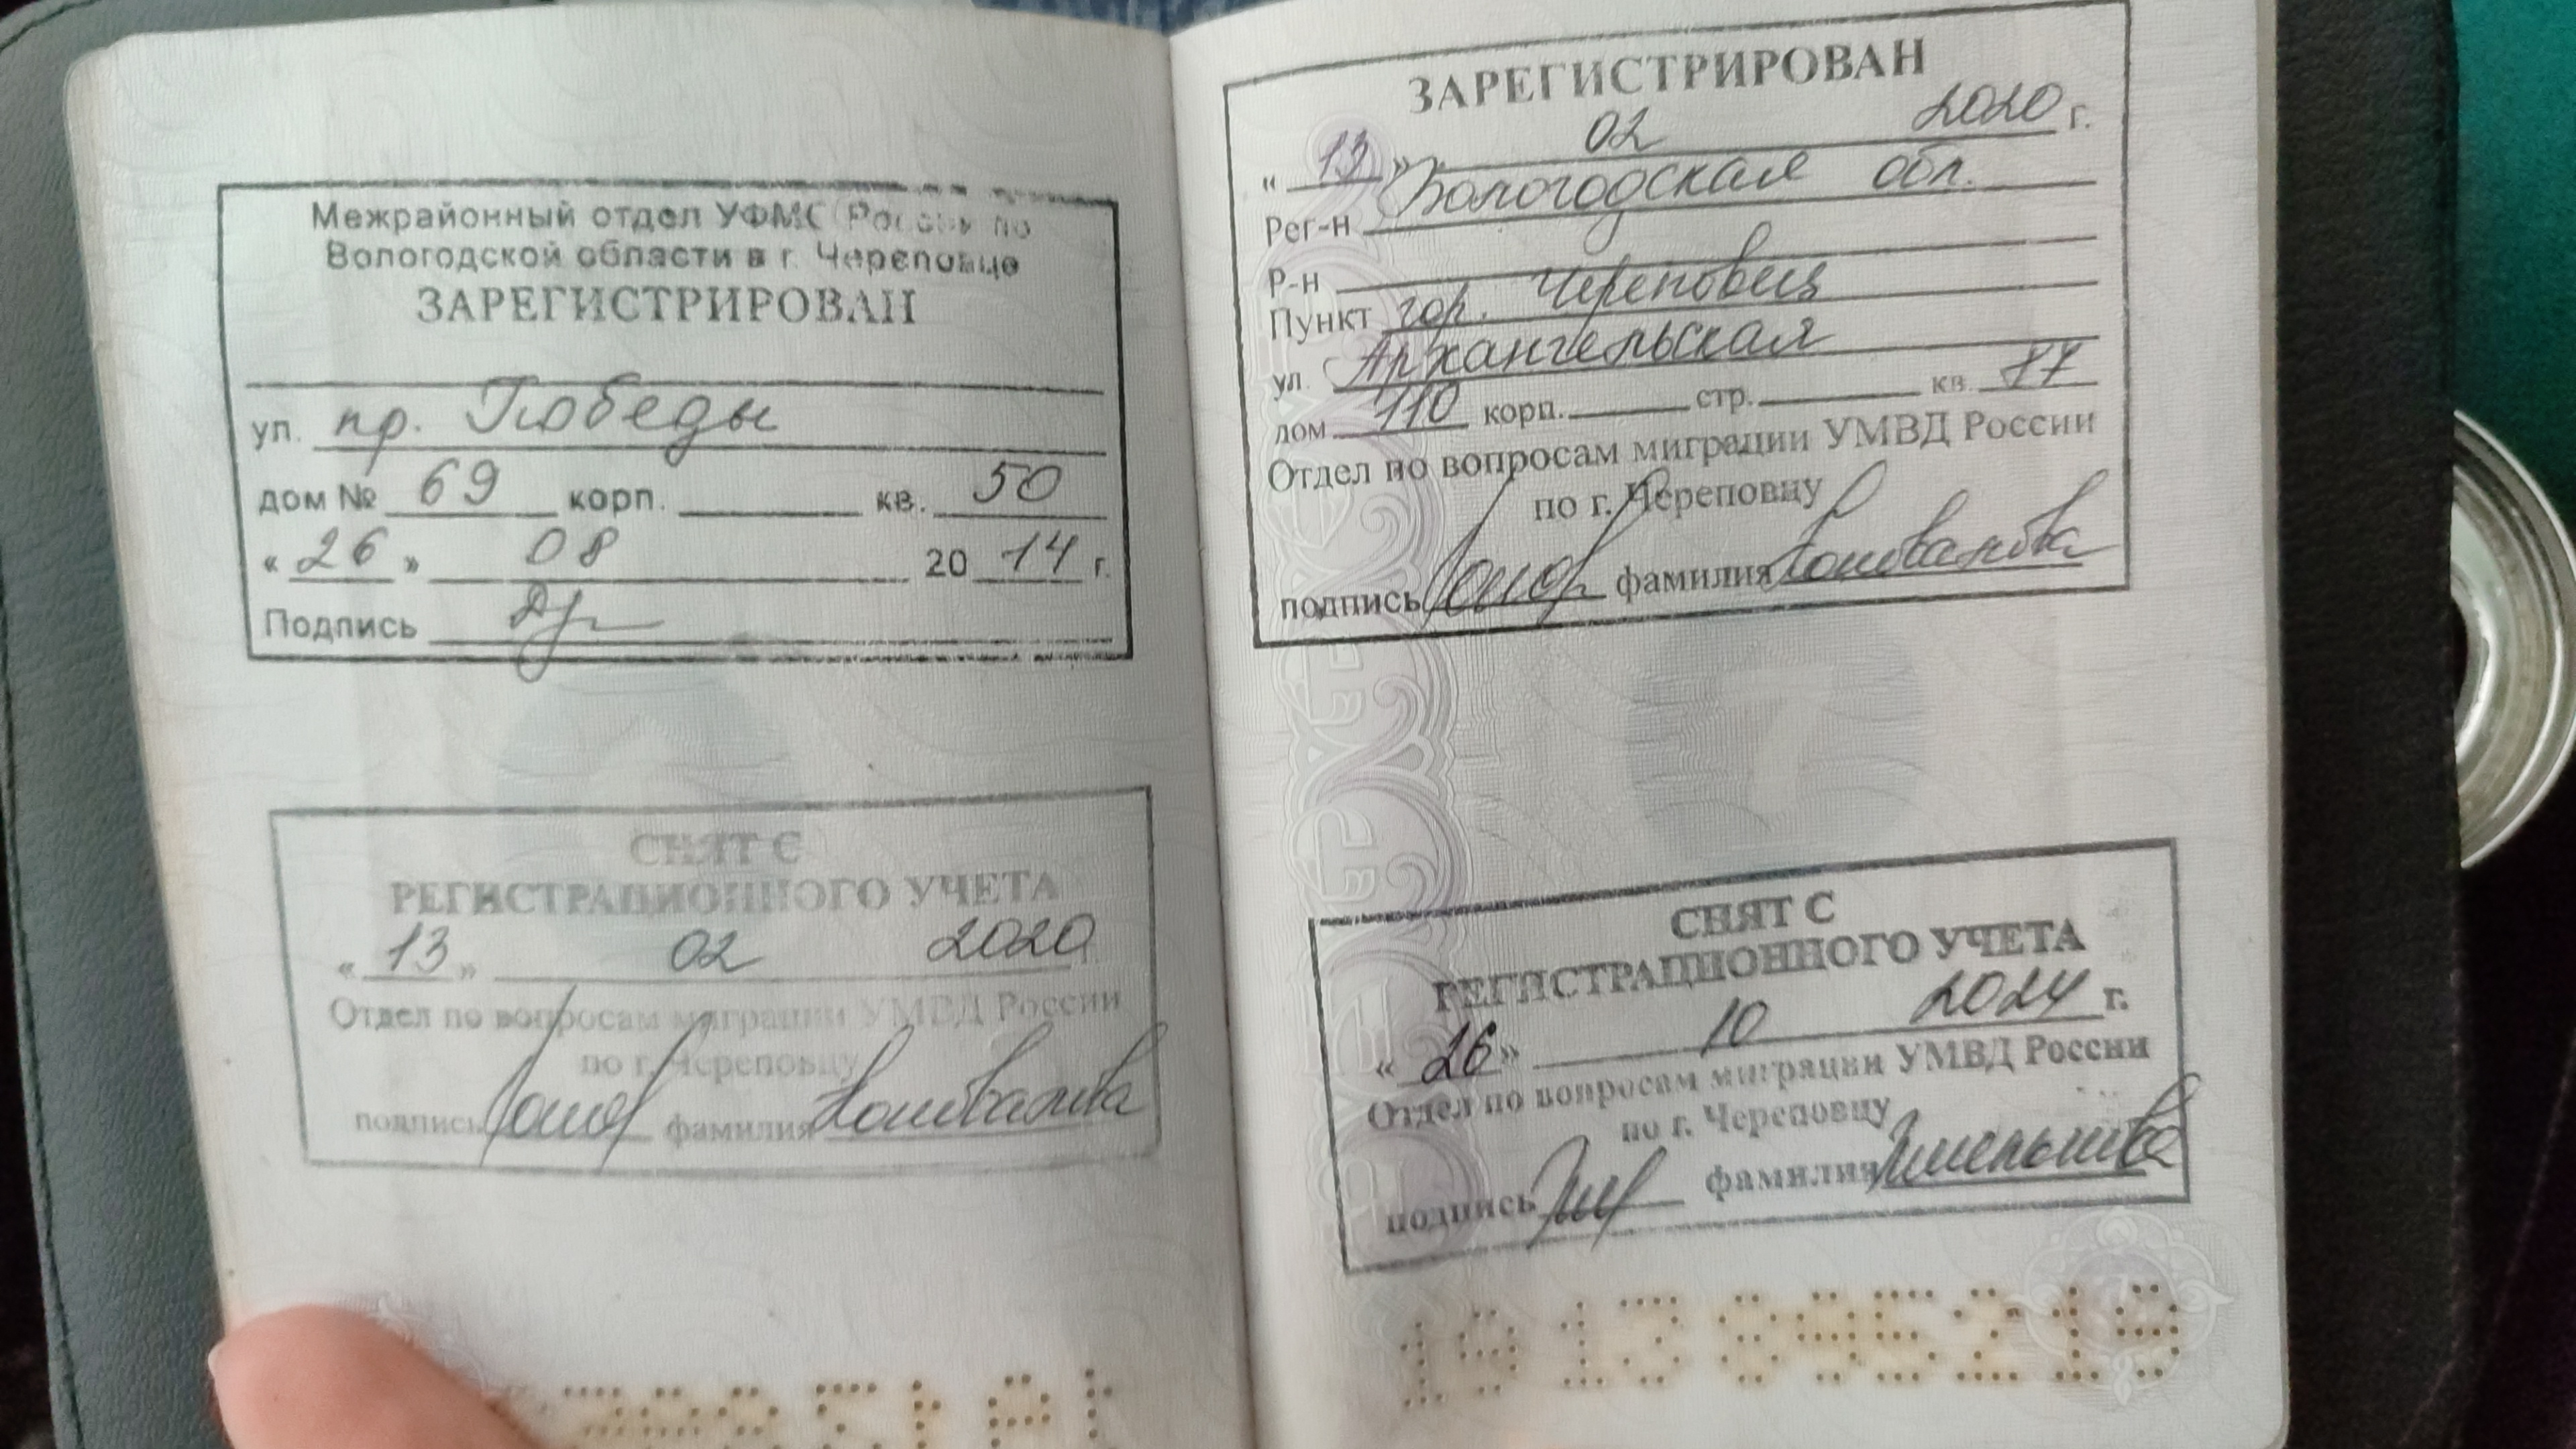 Межрайонный отдел УФМС России по
Вологодской области в г. Череповце
ЗАРЕГИСТРИРОВАН
ул. пр. Победы
дом № 69 корп. кв. 50
« 26 » 08 20 14 г.
Подпись
СНЯТ С
РЕГИСТРАЦИОННОГО УЧЕТА
« 13 » 02 2020
Отдел по вопросам миграции УМВД России
по г. Череповцу
подпись фамилия
ЗАРЕГИСТРИРОВАН
« 13 » 02 2020 г.
Рег-н Вологодская обл.
Р-н
Пункт гор. Череповец
ул. Архангельская
дом 110 корп. стр. кв.
Отдел по вопросам миграции УМВД России
по г. Череповцу
подпись фамилия
СНЯТ С
РЕГИСТРАЦИОННОГО УЧЕТА
« 26 » 10 2024 г.
Отдел по вопросам миграции УМВД России
по г. Череповцу
подпись фамилия
19 13 895219